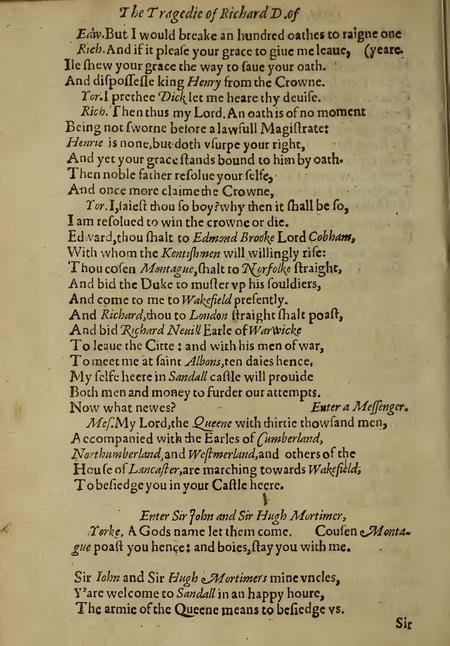 The Tragedie of Richard D. of
Edw. But I would breake an hundred oathes to raigne one
Rich. And if it pleaſe your grace to giue me leaue, (yeare.
Ile ſhew your grace the way to ſaue your oath.
And diſpoſſeſſe king Henry from the Crowne.
Yor. I prethee Dick let me heare thy deuiſe.
Rich. Then thus my Lord. An oath is of no moment
Being not ſworne before a lawfull Magiſtrate:
Henrie is none, but doth vſurpe your right,
And yet your grace ſtands bound to him by oath.
Then noble father reſolue your ſelfe,
And once more claime the Crowne,
Yor. I, ſaieſt thou ſo boy? why then it ſhall be ſo,
I am reſolued to win the crowne or die.
Edward, thou ſhalt to Edmond Brooke Lord Cobham,
With whom the Kentiſhmen will willingly riſe:
Thou coſen Montague, ſhalt to Norfolke ſtraight,
And bid the Duke to muſter vp his ſouldiers,
And come to me to Wakefield preſently.
And Richard, thou to London ſtraight ſhalt poaſt,
And bid Richard Neuill Earle of Warwicke
To leaue the Citte : and with his men of war,
To meet me at ſaint Albons, ten daies hence,
My ſelfe heere in Sandall caſtle will prouide
Both men and money to furder our attempts.
Now what newes? Enter a Meſſenger.
Meſ. My Lord, the Queene with thirtie thowſand men,
Accompanied with the Earles of Cumberland,
Northumberland, and Weſtmerland, and others of the
Houſe of Lancaſter, are marching towards Wakefield,
To beſiedge you in your Caſtle heere.
Enter Sir John and Sir Hugh Mortimer,
Yorke. A Gods name let them come. Couſen Monta-
gue poaſt you hence: and boies, ſtay you with me.
Sir Iohn and Sir Hugh Mortimers mine vncles,
Y'are welcome to Sandall in an happy houre,
The armie of the Queene means to beſiedge vs.
Sir